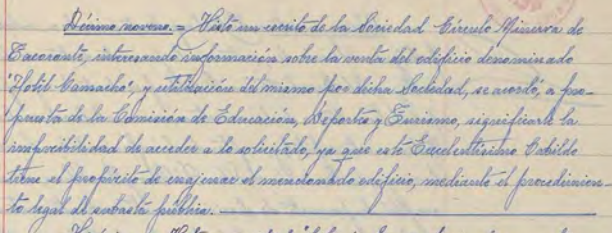 Décimo noveno. = Visto un escrito de la Sociedad Círculo Minerva de
Tacoronte, interesando información sobre la venta del edificio denominado
"Hotel Camacho", y utilización del mismo por dicha Sociedad, se acordó, a pro-
puesta de la Comisión de Educación, Deportes y Turismo, significarle la
imposibilidad de acceder a lo solicitado, ya que este Excelentísimo Cabildo
tiene el propósito de enajenar el mencionado edificio, mediante el procedimien-
to legal de subasta pública.